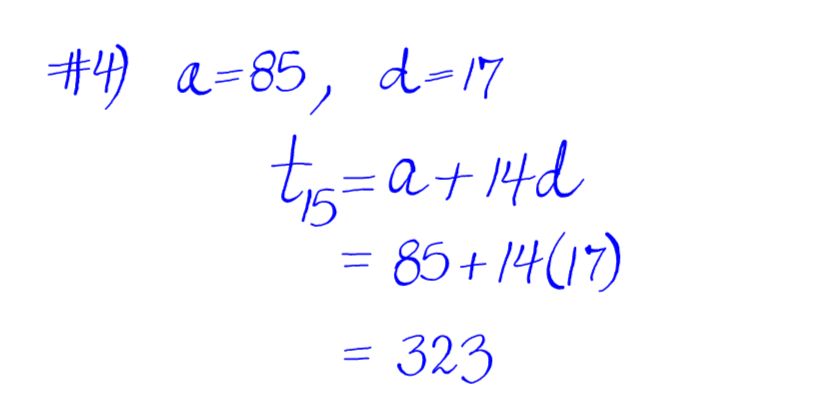 #4) a=85, d=17
t₁₅=a+14d
= 85+14(17)
= 323